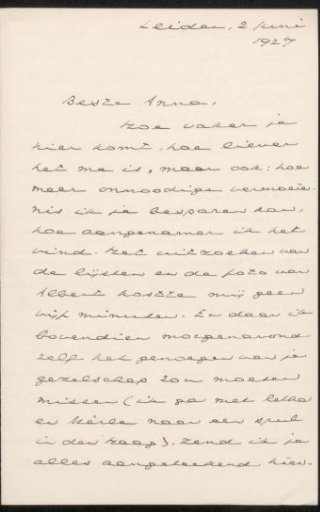 Leiden, 2 Juni
1927
Beste Anna,
Hoe vaker je
hier komt, hoe liever
het me is, maar ook: hoe
meer onnoodige vermoeie-
nis ik je besparen kan,
hoe aangenamer ik het
vind. Het uitzoeken van
de lijsten en de foto van
Albert kostte mij geen
vijf minuten. En daar ik
bovendien morgenavond
zelf het genoegen van je
gezelschap zou moeten
missen (ik ga met
en naar een
in den Haag), zend ik je
alles aangeteekend hier-